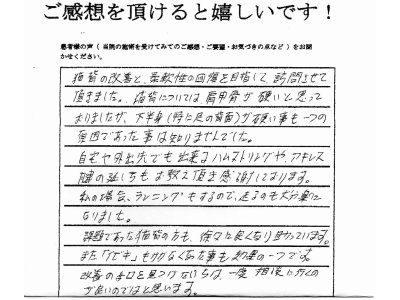 ご感想を頂けると嬉しいです！
患者様の声（当院の施術を受けてみてのご感想・ご要望・お気づきの点など）をお聞
かせください。
猫背の改善と、柔軟性の回復を目指して、訪問させて
頂きました。猫背については肩甲骨が硬いと思って
おりましたが、下半身（特に足の背面）が硬い事も一つの
原因であった事は知りませんでした。
自宅や外出先でも出来るハムストリングや、アキレス
腱の延ばしもお教え頂き感謝しております。
私の場合、ランニングもするので、走るのも大分楽に
なりました。
課題であった猫背の方も、徐々に良くなり助かっています。
また「イビキ」もかかなくなった事も効果の一つです。
改善の手口を見つけないうちは、一度相談に行くの
が良いのではと思います。